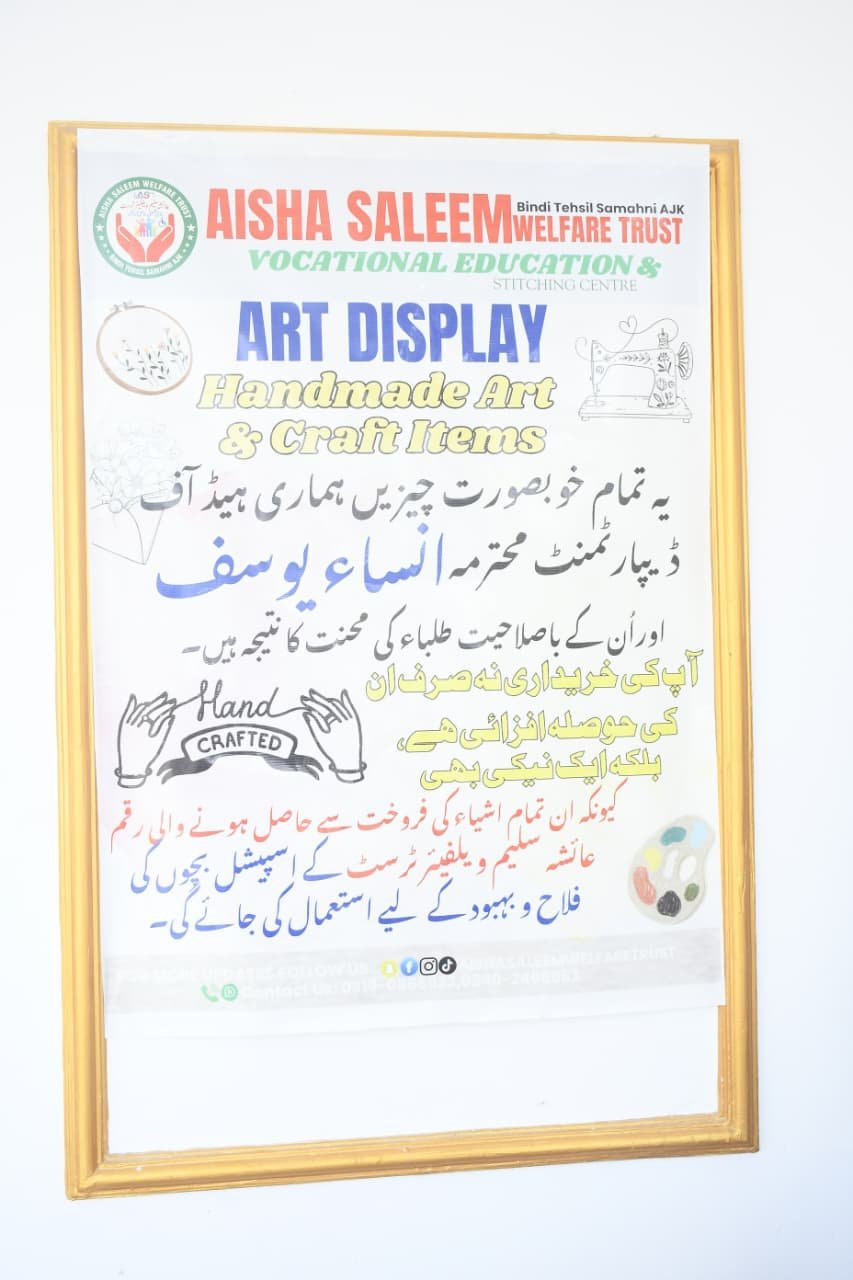 AISHA SALEEM WELFARE TRUST
BINDI TEHSIL SAMAHNI AJK
AISHA SALEEM
Bindi Tehsil Samahni AJK
WELFARE TRUST
VOCATIONAL EDUCATION &
STITCHING CENTRE
ART DISPLAY
Handmade Art
& Craft Items
یہ تمام خوبصورت چیزیں ہماری ہیڈ آف
ڈیپارٹمنٹ محترمہ انساء یوسف
اور اُن کے باصلاحیت طلباء کی محنت کا نتیجہ ہیں۔
آپ کی خریداری نہ صرف ان
کی حوصلہ افزائی ہے،
بلکہ ایک نیکی بھی
Hand
CRAFTED
کیونکہ ان تمام اشیاء کی فروخت سے حاصل ہونے والی رقم
عائشہ سلیم ویلفیئر ٹرسٹ کے اسپیشل بچوں کی
فلاح و بہبود کے لیے استعمال کی جائے گی۔
FOR MORE UPDATES FOLLOW US
Contact Us: